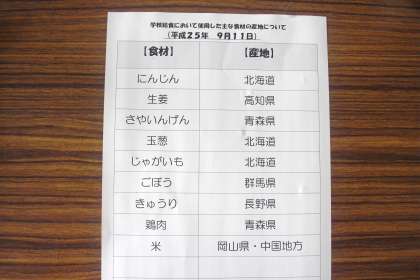 学校給食において使用した主な食材の産地について
（平成２５年　９月１１日）
【食材】　【産地】
にんじん　北海道
生姜　高知県
さやいんげん　青森県
玉葱　北海道
じゃがいも　北海道
ごぼう　群馬県
きゅうり　長野県
鶏肉　青森県
米　岡山県・中国地方